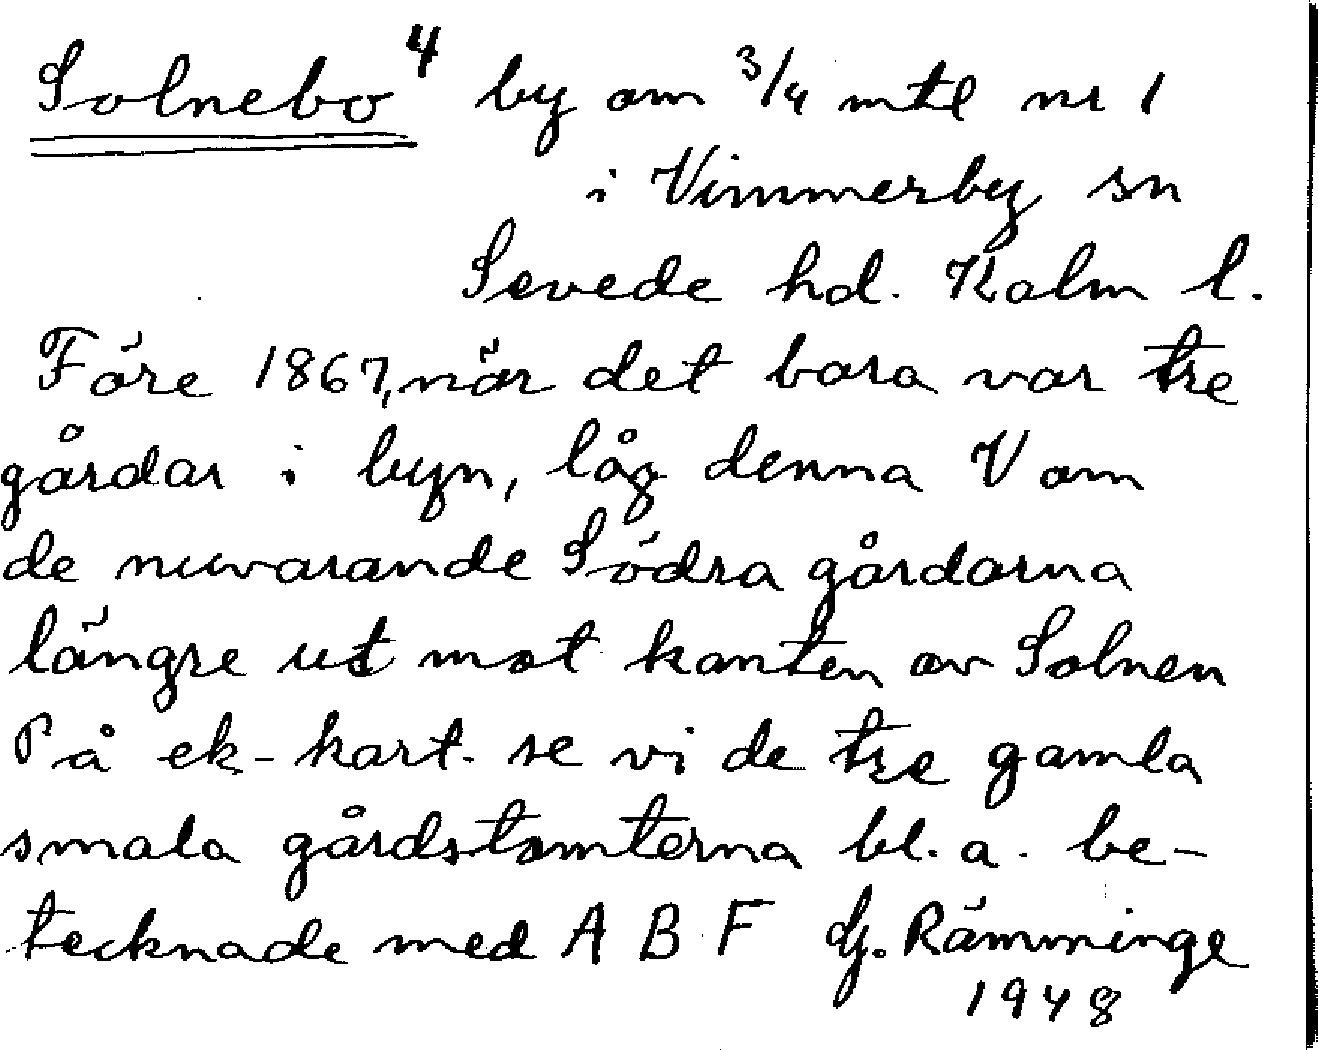 Solnebo 4 by om 3/4 mtl nr 1
i Vimmerby sn
Sevede hd. Kalm l.
Före 1867, när det bara var tre
gårdar i byn, låg denna V om
de nuvarande Södra gårdarna
längre ut mot kanten av Solnen
På ek-kart. se vi de tre gamla
smala gårdstomterna bl. a. be-
tecknade med A B F G. Rämminge
1948